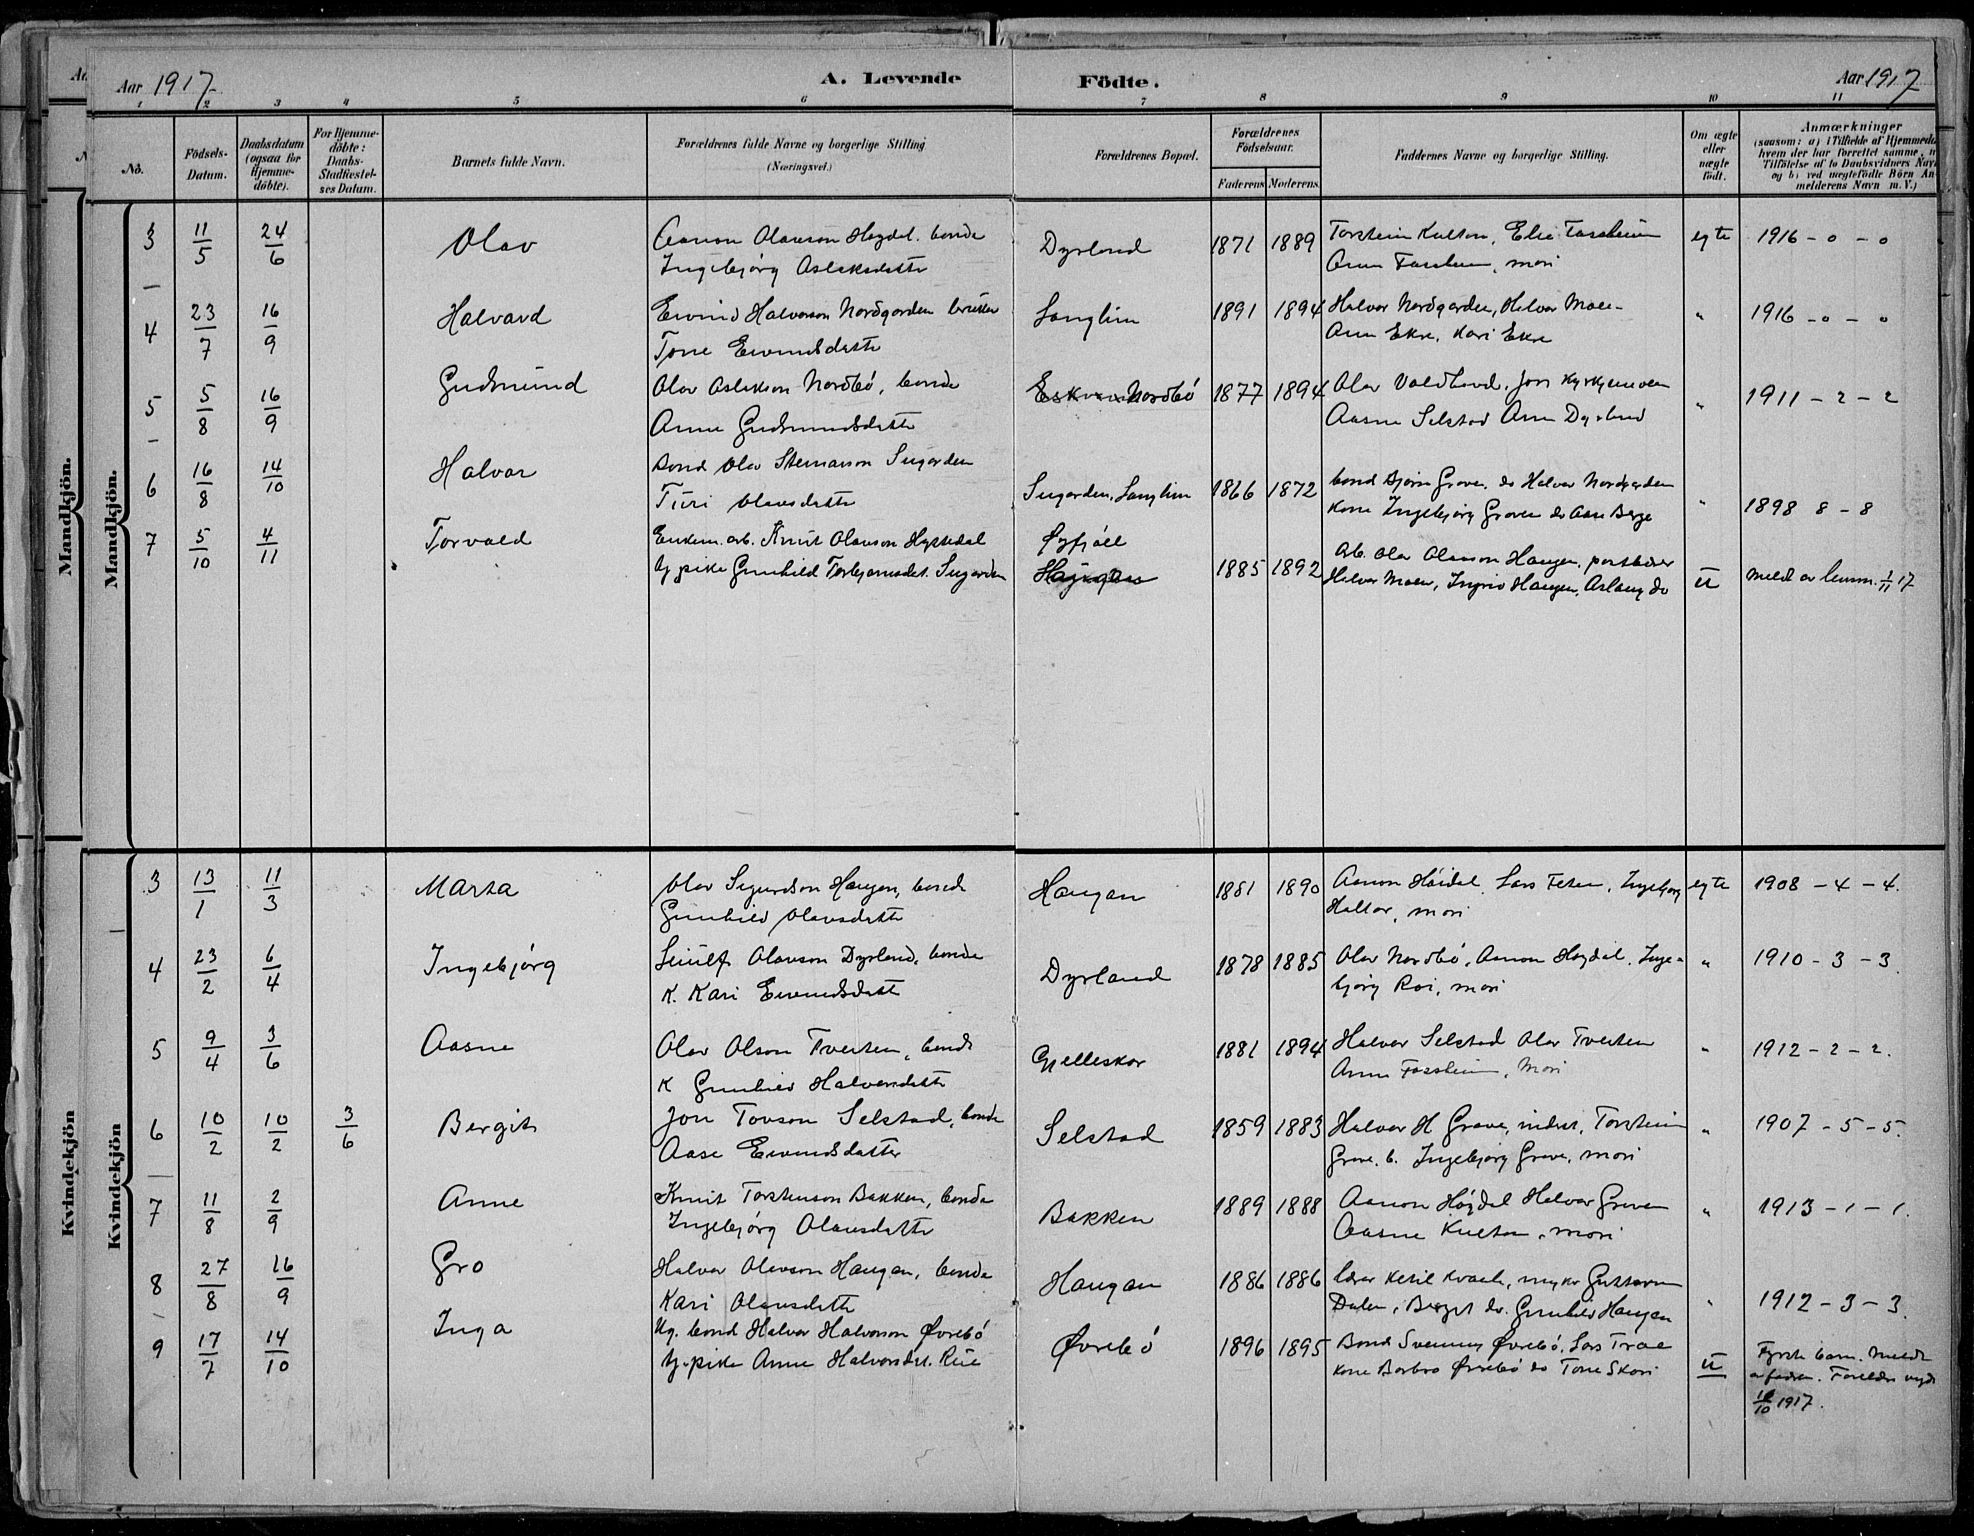 Aar 1917. A. Levende Födte. Aar 1917
1 2 3 4 5 6 7 8 9 10 11
No. Födsels-Datum. Daabsdatum (ogsaa for Hjemmedöbte). For Hjemmedöbte: Daabs-Stadfestelses Datum. Barnets fulde Navn. Forældrenes fulde Navne og borgerlige Stilling (Næringsvei.) Forældrenes Bopæl. Forældrenes Födselsaar. Faderens Moderens. Faddernes Navne og borgerlige Stilling. Om ægte eller uægte födt. Anmærkninger
(saasom: a) i Tilfælde af Hjemmedaab
hvem der har forrettet samme,
Tilföielse af to Daabsvidners Navne
og b) ved uægtefödte Börn An-
melderens Navn m. V.)
Mandkjön.
3 11/5 24/6 Olav Aanon Olavson Høgdal. bonde Dyrland 1871 1889 Torstein Kulton, Elie Fossheim egte 1916 - 0 - 0
Ingebjørg Aslaksdotter Ann Fossheim, mori
4 23/7 16/9 Halvard Eivind Halvorson Nordgarden bruker Langlim 1891 1894 Halvor Nordgarden, Halvor Moen „ 1916 - 0 - 0
Tone Eivindsdotter Ann Ekre, Kari Ekre
5 5/8 16/9 Gudmund Olav Aslakson Nordbø, bonde Nordbø 1877 1894 Olav Valdland, Jon Kyrkjemoen „ 1911 - 2 - 2
Anne Gudmundsdotter Aasne Selstad Ann Dyrland
6 16/8 14/10 Halvor bond Olav Steinarson Sugarden Sugarden, Langlim 1866 1872 bond Bjørn Groven, do Halvor Nordgarden „ 1898 8 - 8
Turi Olavsdotter kone Ingebjørg Groven do Aase Berge
7 5/10 4/11 Torvald Enkem. arb. Knut Olavson Hyttedal Øyfjell 1885 1892 Arb. Olav Olavson Haugen, postbærer U meld av lensm. 1/11 17
Ug pike Gunhild Torbjørnsdot. Sugarden Haugan Halvor Moen, Ingrid Haugen, Aslaug do
Kvindekjön
3 13/1 11/3 Marta Olav Sigurdson Haugan, bonde Haugan 1881 1890 Aanon Høidal, Lars Feten, Ingeborg egte 1908 - 4 - 4.
Gunhild Olavsdotter Haltar, mori
4 23/2 6/4 Ingebjørg Olavson Dyrland, bonde Dyrland 1878 1885 Olav Nordbø, Aanon Høgdal, Inge- „ 1910 - 3 - 3.
K. Kari Eivindsdott bjørg Roi, mori
5 9/4 3/6 Aasne Olav Olson Tveiten, bonde Gjelleskor 1881 1894 Halvor Selstad Olav Tveiten „ 1912 - 2 - 2.
K Gunhild Halvorsdotter Anne Fossheim, mori
6 10/2 10/2 3/6 Bergit Jon Tovson Selstad, bonde Selstad 1859 1883 Halvor H Grave, inderst, Torstein „ 1907 - 5 - 5.
Aase Eivindsdatter Grave. b. Ingebjørg Grave, mori
7 11/8 2/9 Anne Knut Torsteinson Bakken, bonde Bakken 1889 1888 Aanon Høgdal Halvor Groven „ 1913 - 1 - 1.
Ingebjørg Olavsdotter Aasne Kulton, mori
8 27/8 16/9 Gro Halvor Olavson Haugan, bonde Haugan 1886 1886 lærer Ketil Kvaale, Guttorm „ 1912 - 3 - 3.
Kari Olavsdotter Dalen, Berget do. Gunhild Haugan
9 17/7 14/10 Inga Ug. bond Halvor Halvorson Øvrebø Øvrebø 1896 1895 Bond Sveinung Øvrebø, Lars Traae U Fyrste barn. Meldt
Ug. pike Anne Halvorsdot. Rue kone Barbro Øvrebø do Tone Skori av faderen. Foreldre vigde
10/10 1917.